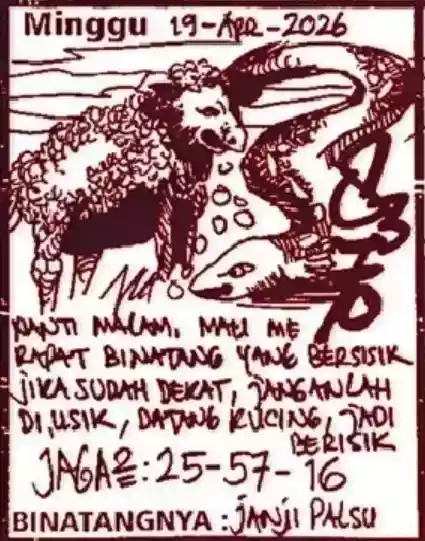 Minggu 19-Apr-2026
NANTI MALAM, MAU ME
RAPAT BINATANG YANG BERSISIK
JIKA SUDAH DEKAT, JANGANLAH
DI,USIK, DATANG KUCING, JADI
BERISIK
JAGA2=:25-57-16
BINATANGNYA : JANJI PALSU